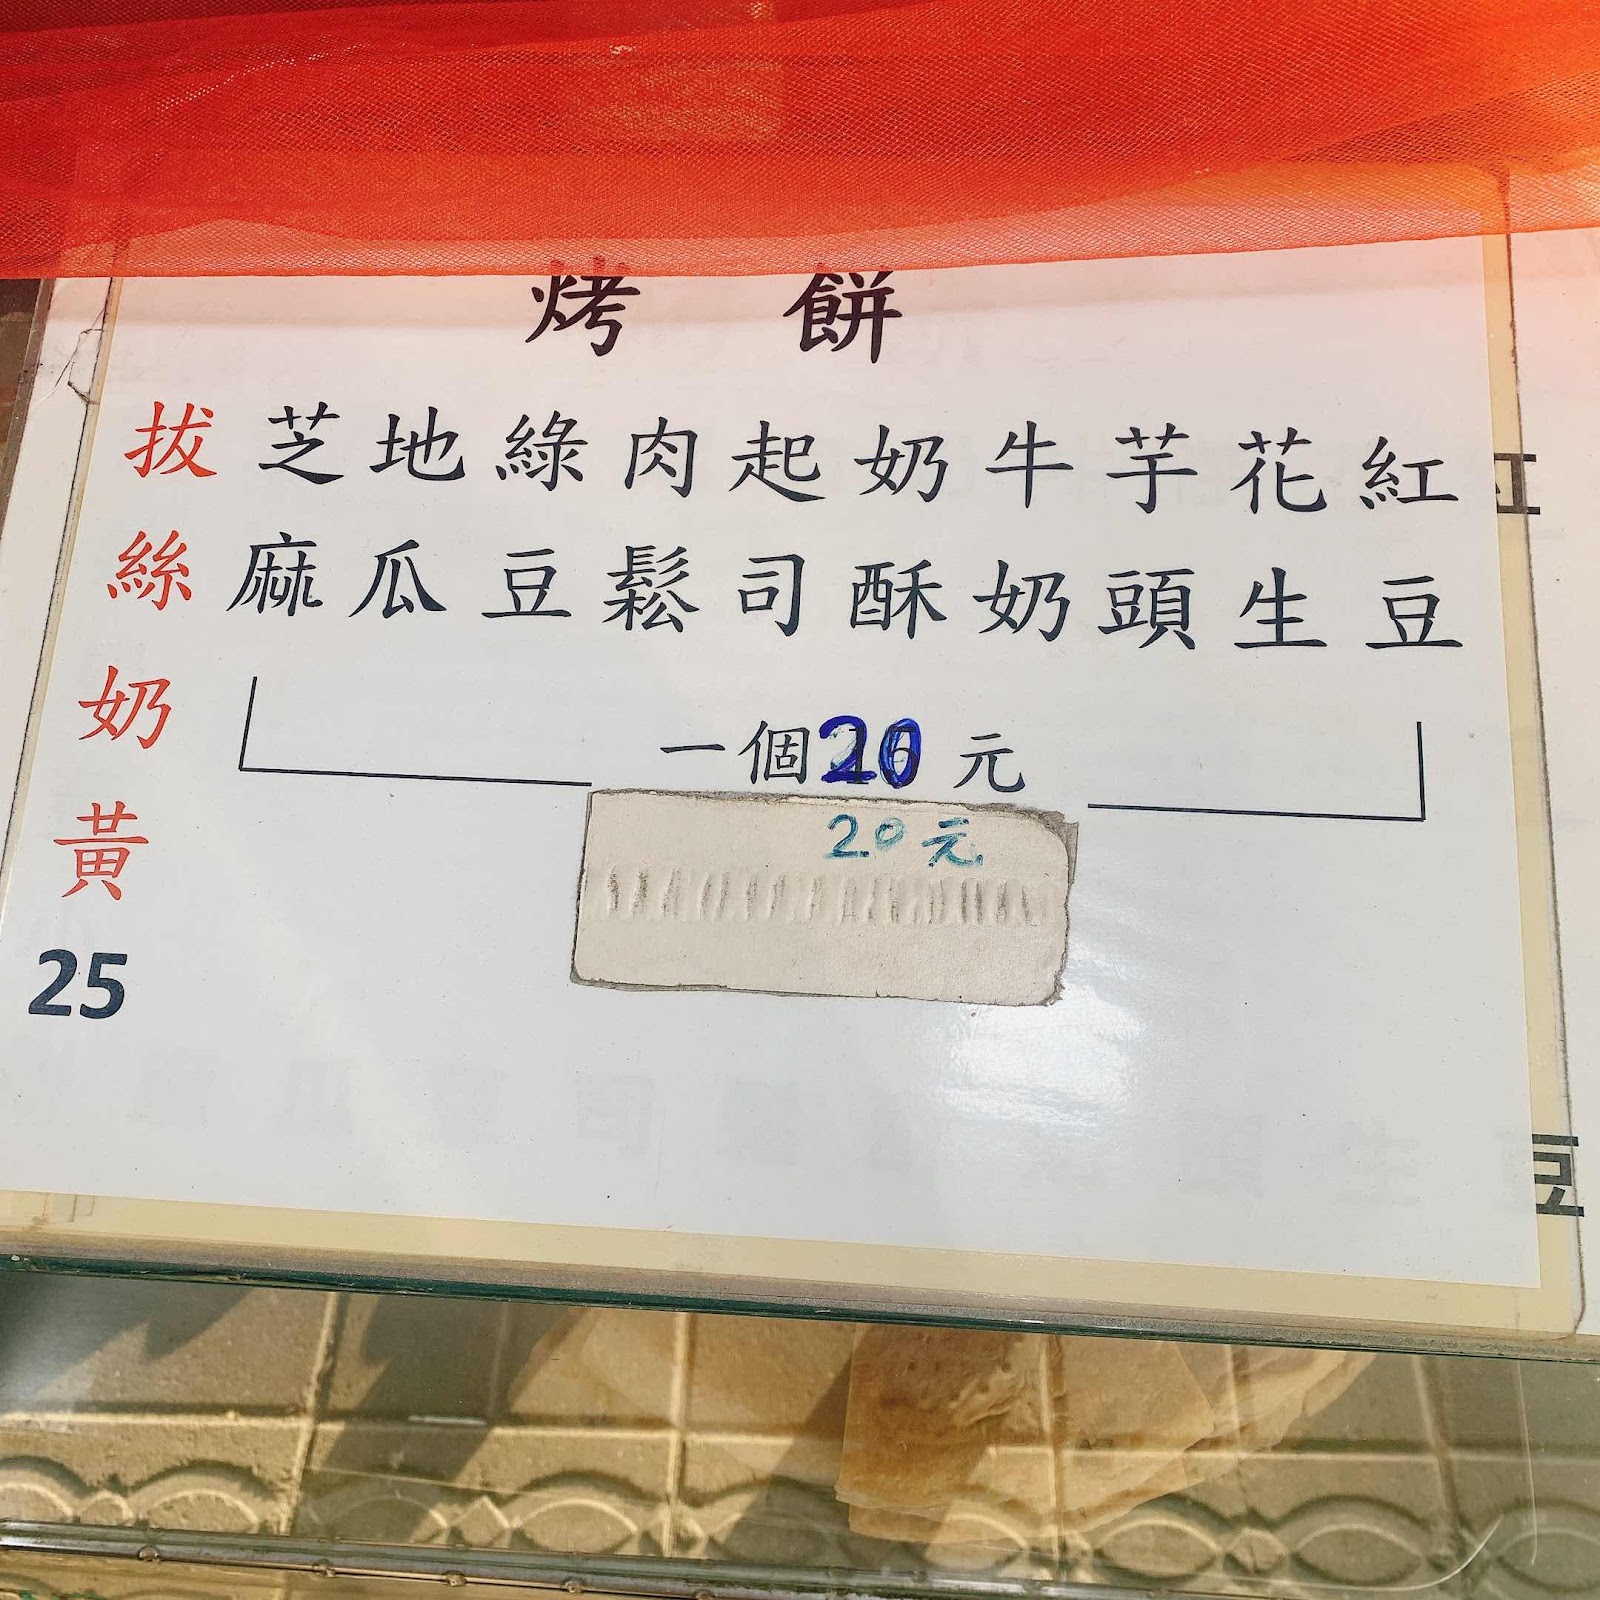 烤餅
紅豆
花生
芋頭
牛奶
奶酥
起司
肉鬆
綠豆
地瓜
芝麻
拔絲奶黃
25
一個20元
20元
豆